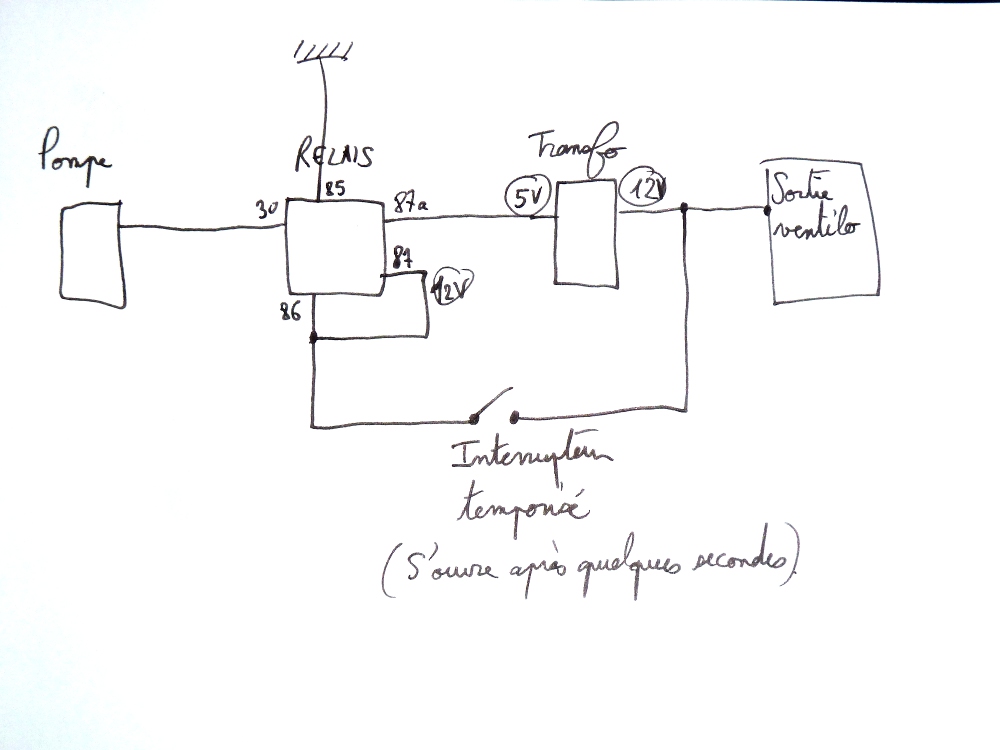 Pompe
RELAIS
85
30
87a
87
12V
86
Transfo
5V
12V
Sortie
ventilo
Interrupteur
temporisé
(S'ouvre après quelques secondes)